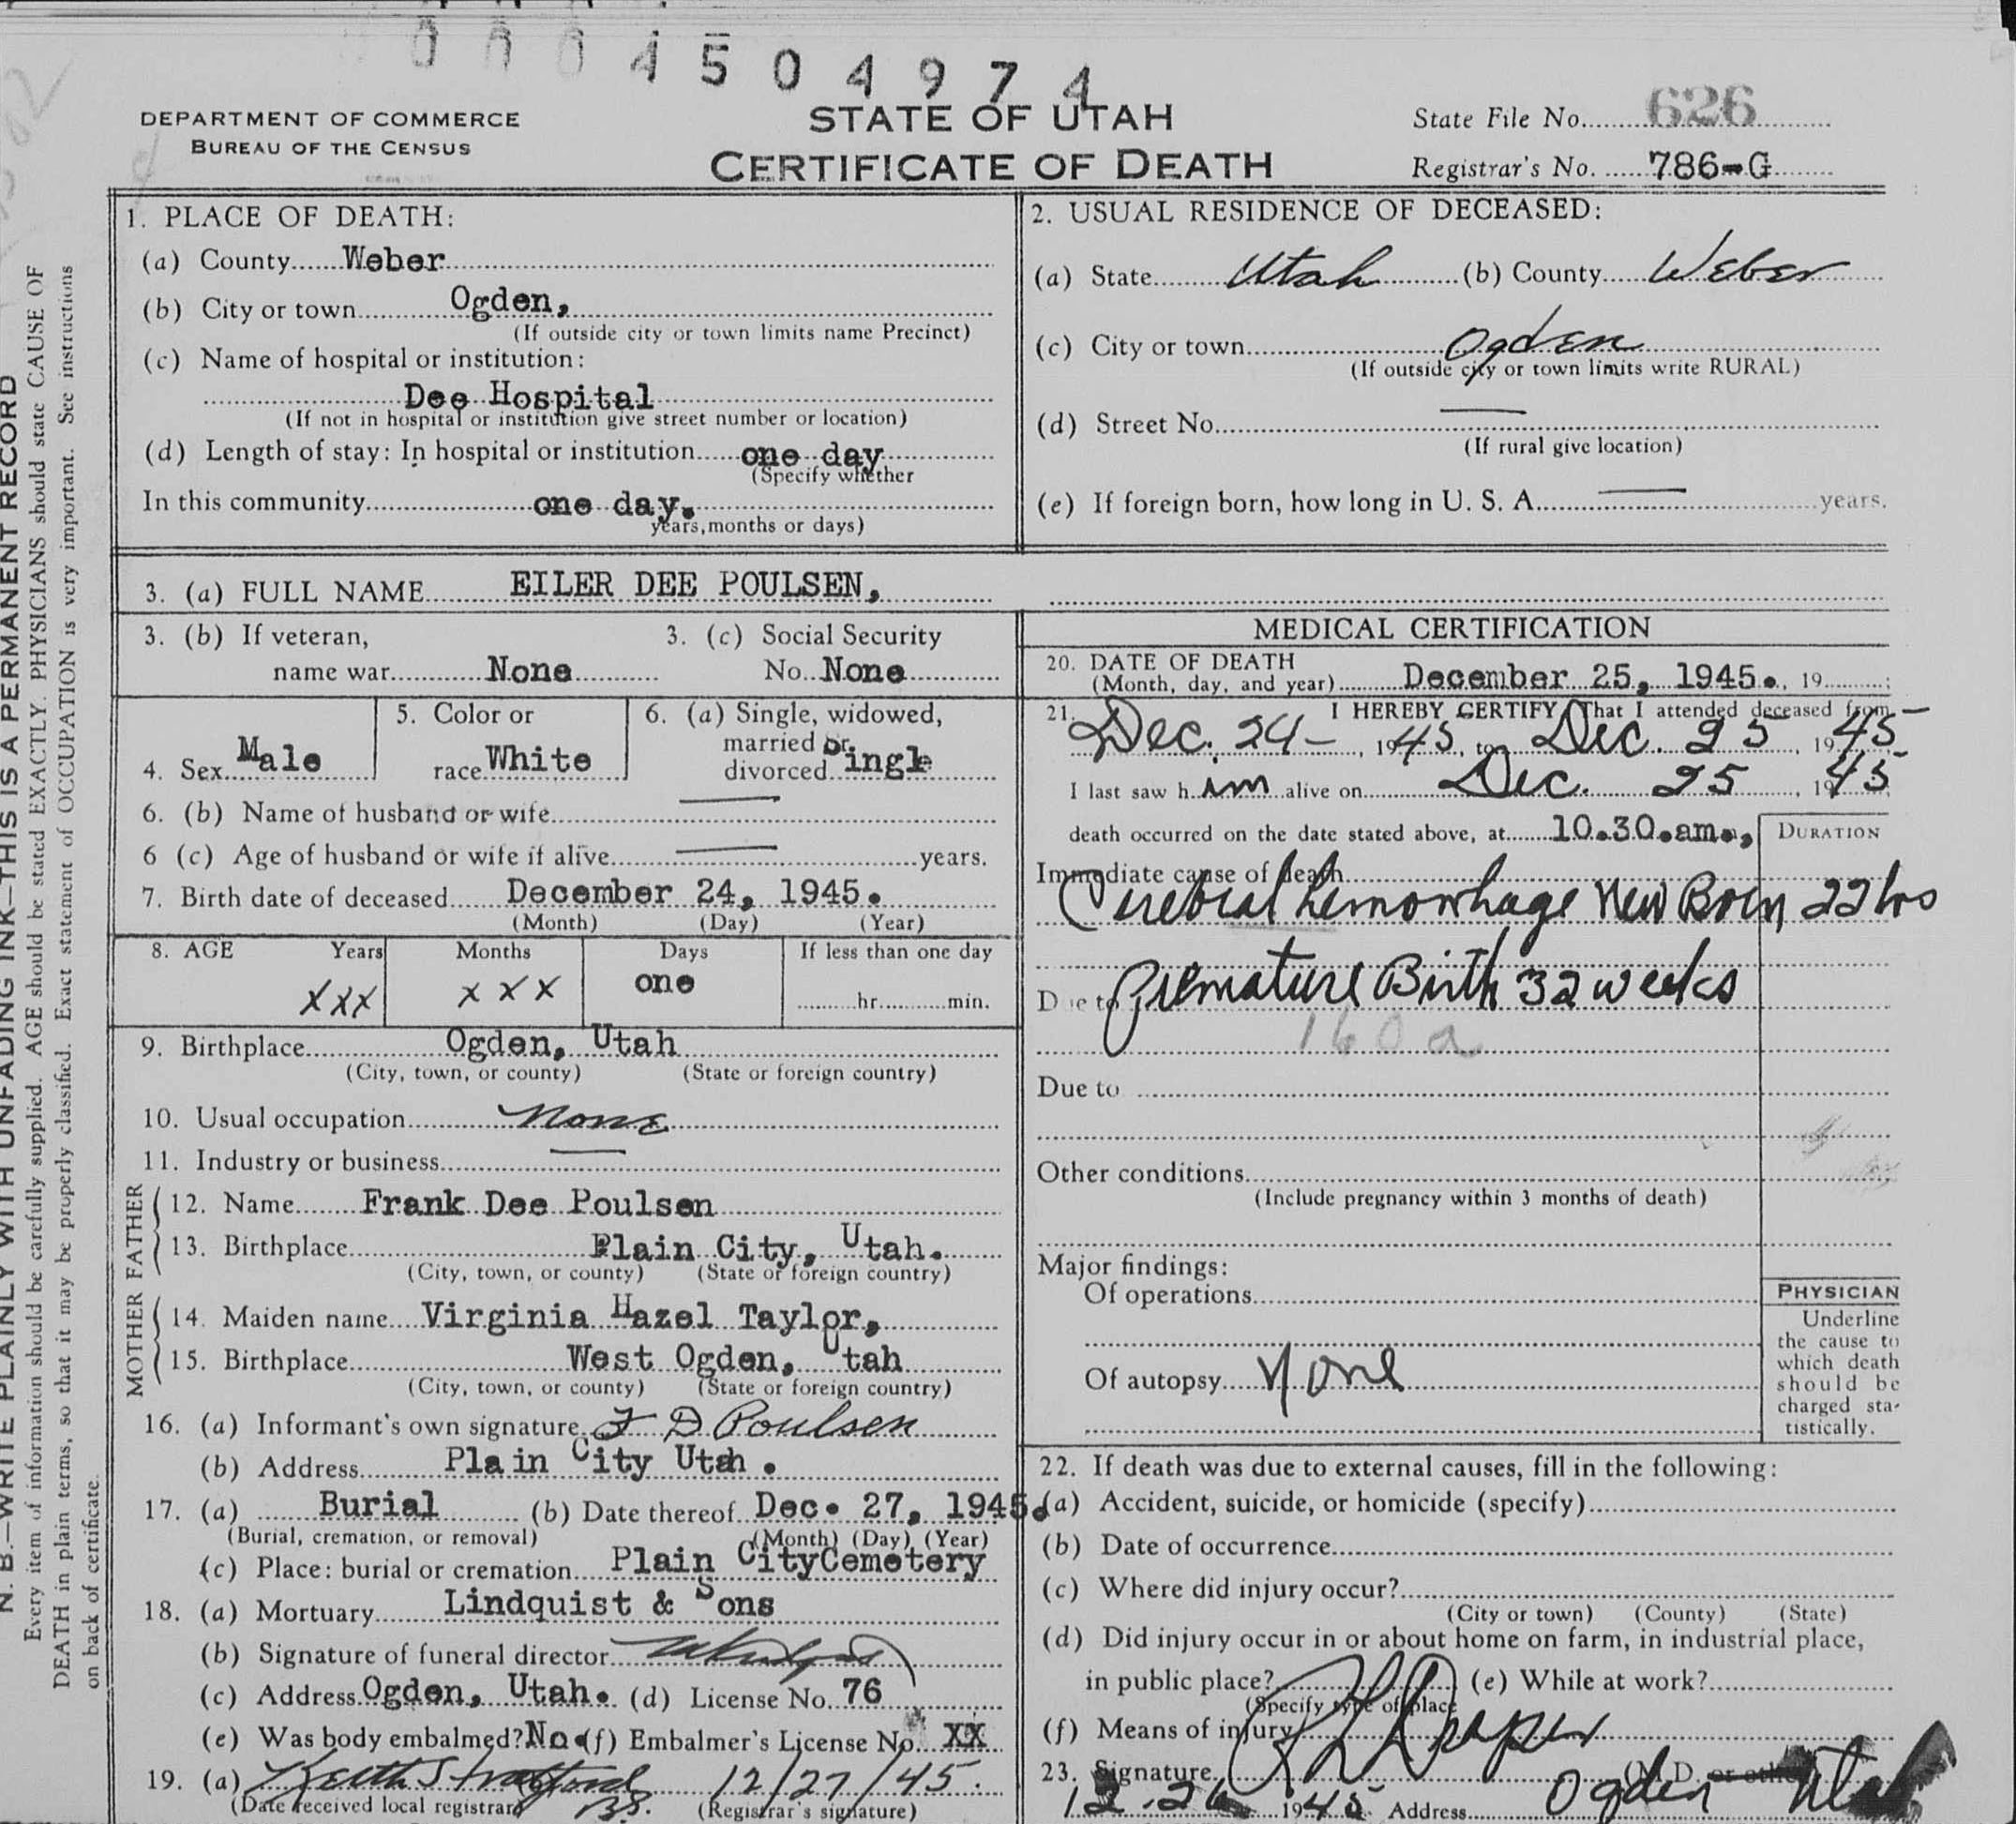 0004504974
DEPARTMENT OF COMMERCE
BUREAU OF THE CENSUS
STATE OF UTAH
CERTIFICATE OF DEATH
State File No. 626
Registrar's No. 786-G
N. B.—WRITE PLAINLY WITH UNFADING INK—THIS IS A PERMANENT RECORD
Every item of information should be carefully supplied. AGE should be stated EXACTLY. PHYSICIANS should state CAUSE OF
DEATH in plain terms, so that it may be properly classified. Exact statement of OCCUPATION is very important. See instructions
on back of certificate.
1. PLACE OF DEATH:
(a) County Weber
(b) City or town Ogden,
(If outside city or town limits name Precinct)
(c) Name of hospital or institution:
Dee Hospital
(If not in hospital or institution give street number or location)
(d) Length of stay: In hospital or institution one day
(Specify whether
In this community one day.
years, months or days)
2. USUAL RESIDENCE OF DECEASED:
(a) State Utah (b) County Weber
(c) City or town Ogden
(If outside city or town limits write RURAL)
(d) Street No. —
(If rural give location)
(e) If foreign born, how long in U. S. A. — years.
3. (a) FULL NAME EILER DEE POULSEN,
3. (b) If veteran,
name war None
3. (c) Social Security
No. None
4. Sex Male
5. Color or
race White
6. (a) Single, widowed,
married or
divorced Single
6. (b) Name of husband or wife —
6 (c) Age of husband or wife if alive — years.
7. Birth date of deceased December 24, 1945.
(Month) (Day) (Year)
8. AGE Years Months Days If less than one day
XXX XXX one hr. min.
9. Birthplace Ogden, Utah
(City, town, or county) (State or foreign country)
10. Usual occupation None
11. Industry or business —
FATHER
12. Name Frank Dee Poulsen
13. Birthplace Plain City, Utah.
(City, town, or county) (State or foreign country)
MOTHER
14. Maiden name Virginia Hazel Taylor,
15. Birthplace West Ogden, Utah
(City, town, or county) (State or foreign country)
16. (a) Informant's own signature F D Poulsen
(b) Address Plain City Utah.
17. (a) Burial (b) Date thereof Dec. 27, 1945.
(Burial, cremation, or removal) (Month) (Day) (Year)
(c) Place: burial or cremation Plain CityCemetery
18. (a) Mortuary Lindquist & Sons
(b) Signature of funeral director
(c) Address Ogden, Utah. (d) License No. 76
(e) Was body embalmed? No. (f) Embalmer's License No. XX
19. (a) Keith 12/27/45.
(Date received local registrar) (Registrar's signature)
MEDICAL CERTIFICATION
20. DATE OF DEATH
(Month, day, and year) December 25, 1945., 19 ;
21. I HEREBY CERTIFY, That I attended deceased from
Dec. 24-, 1945, to Dec. 25, 1945-
I last saw h im alive on Dec. 25, 1945
death occurred on the date stated above, at 10.30.am.,
DURATION
Immediate cause of death
Cerebral hemorrhage New Born 22 hrs
Due to Premature Birth 32 weeks
160a
Due to
Other conditions
(Include pregnancy within 3 months of death)
Major findings:
Of operations
Of autopsy None
PHYSICIAN
Underline
the cause to
which death
should be
charged sta-
tistically.
22. If death was due to external causes, fill in the following:
(a) Accident, suicide, or homicide (specify)
(b) Date of occurrence
(c) Where did injury occur?
(City or town) (County) (State)
(d) Did injury occur in or about home on farm, in industrial place,
in public place? (e) While at work?
(Specify type of place
(f) Means of injury
23. Signature Draper (M.D. or other)
12-26 1945 Address Ogden Utah